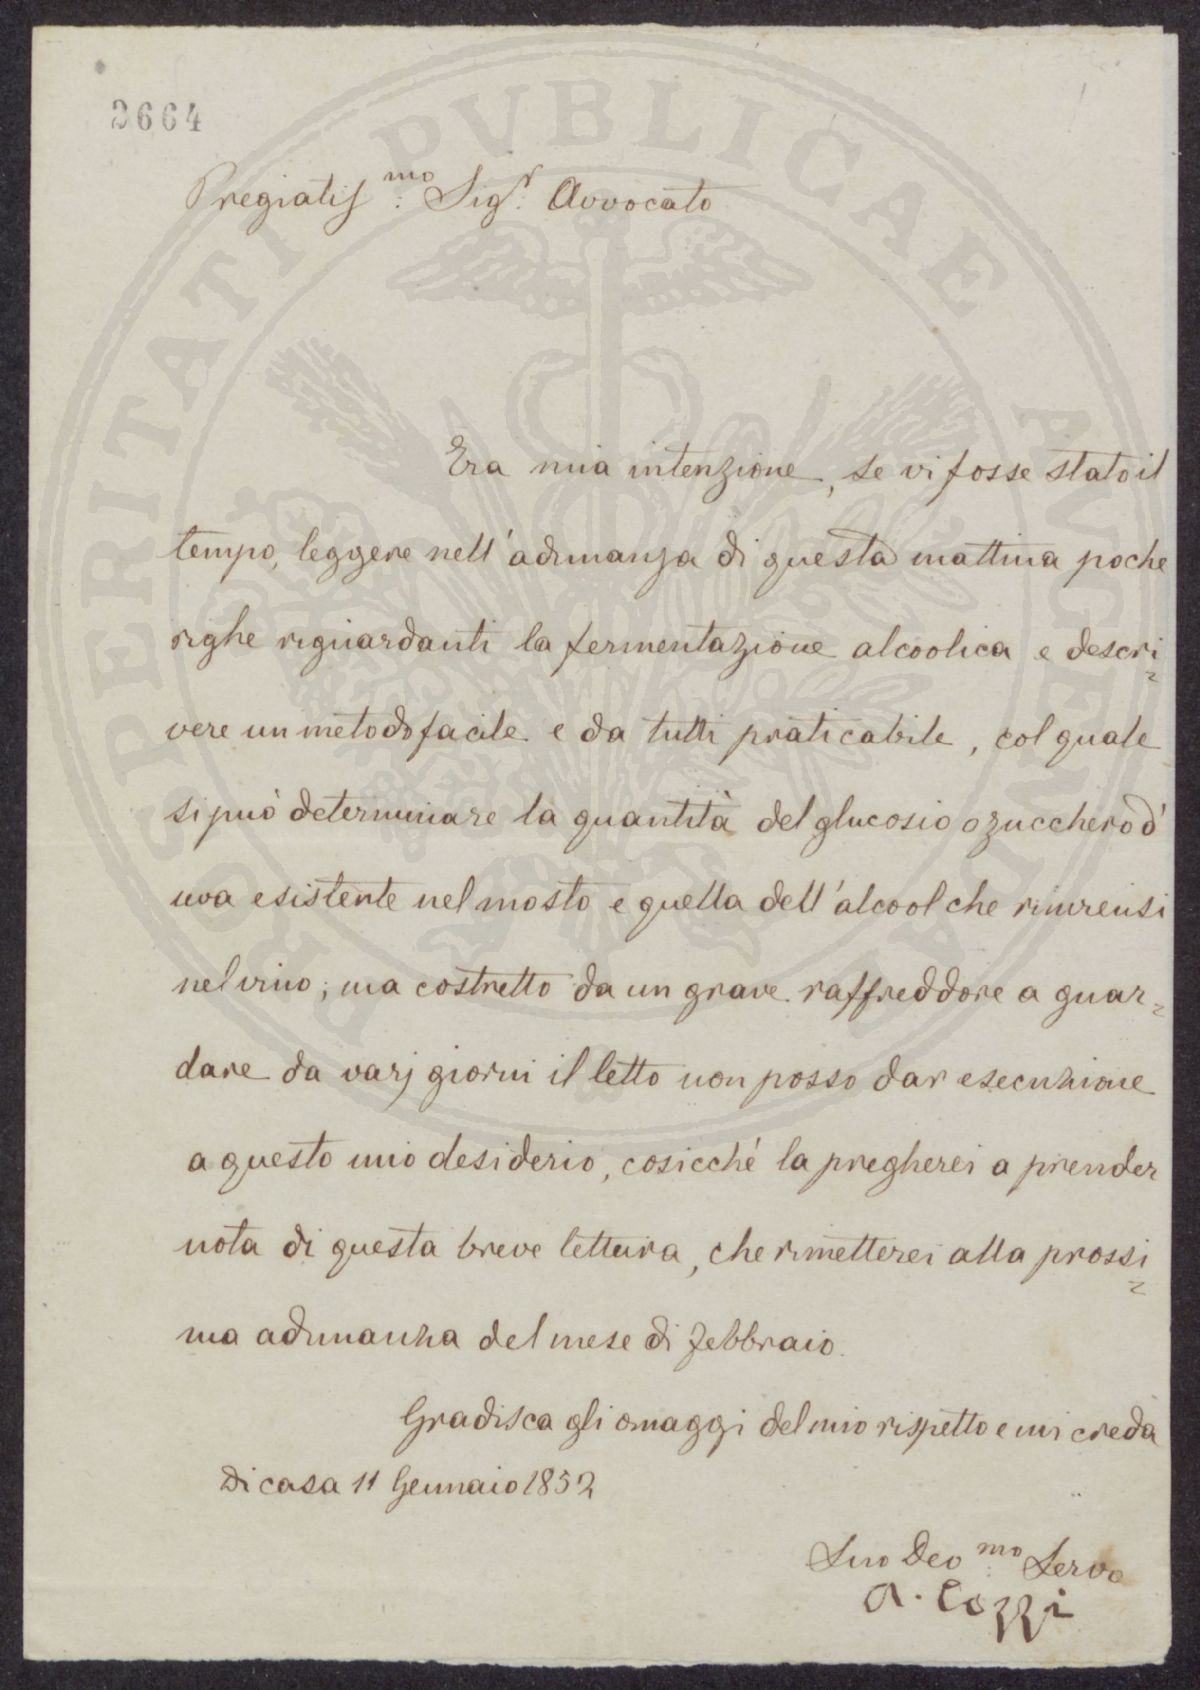 2664
Pregiatis.mo Sigr. Avvocato
Era mia intenzione, se vi fosse stato il
tempo, leggere nell'adunanza di questa mattina poche
righe riguardanti la fermentazione alcoolica e descri=
vere un metodo facile e da tutti praticabile, col quale
si può determinare la quantità del glucosio o zucchero d'
uva esistente nel mosto e quella dell'alcool che rinviensi
nel vino; ma costretto da un grave raffreddore a guar=
dare da varj giorni il letto non posso dar esecuzione
a questo mio desiderio, cosicché la pregherei a prender
nota di questa breve lettura, che rimetterei alla prossi=
ma adunanza del mese di febbraio.
Gradisca gli omaggi del mio rispetto e mi creda
Di casa 11 Gennaio 1852
Suo Devmo. Servo
A. Cozzi
PROSPERITATI PVBLICAE AVGENDAE